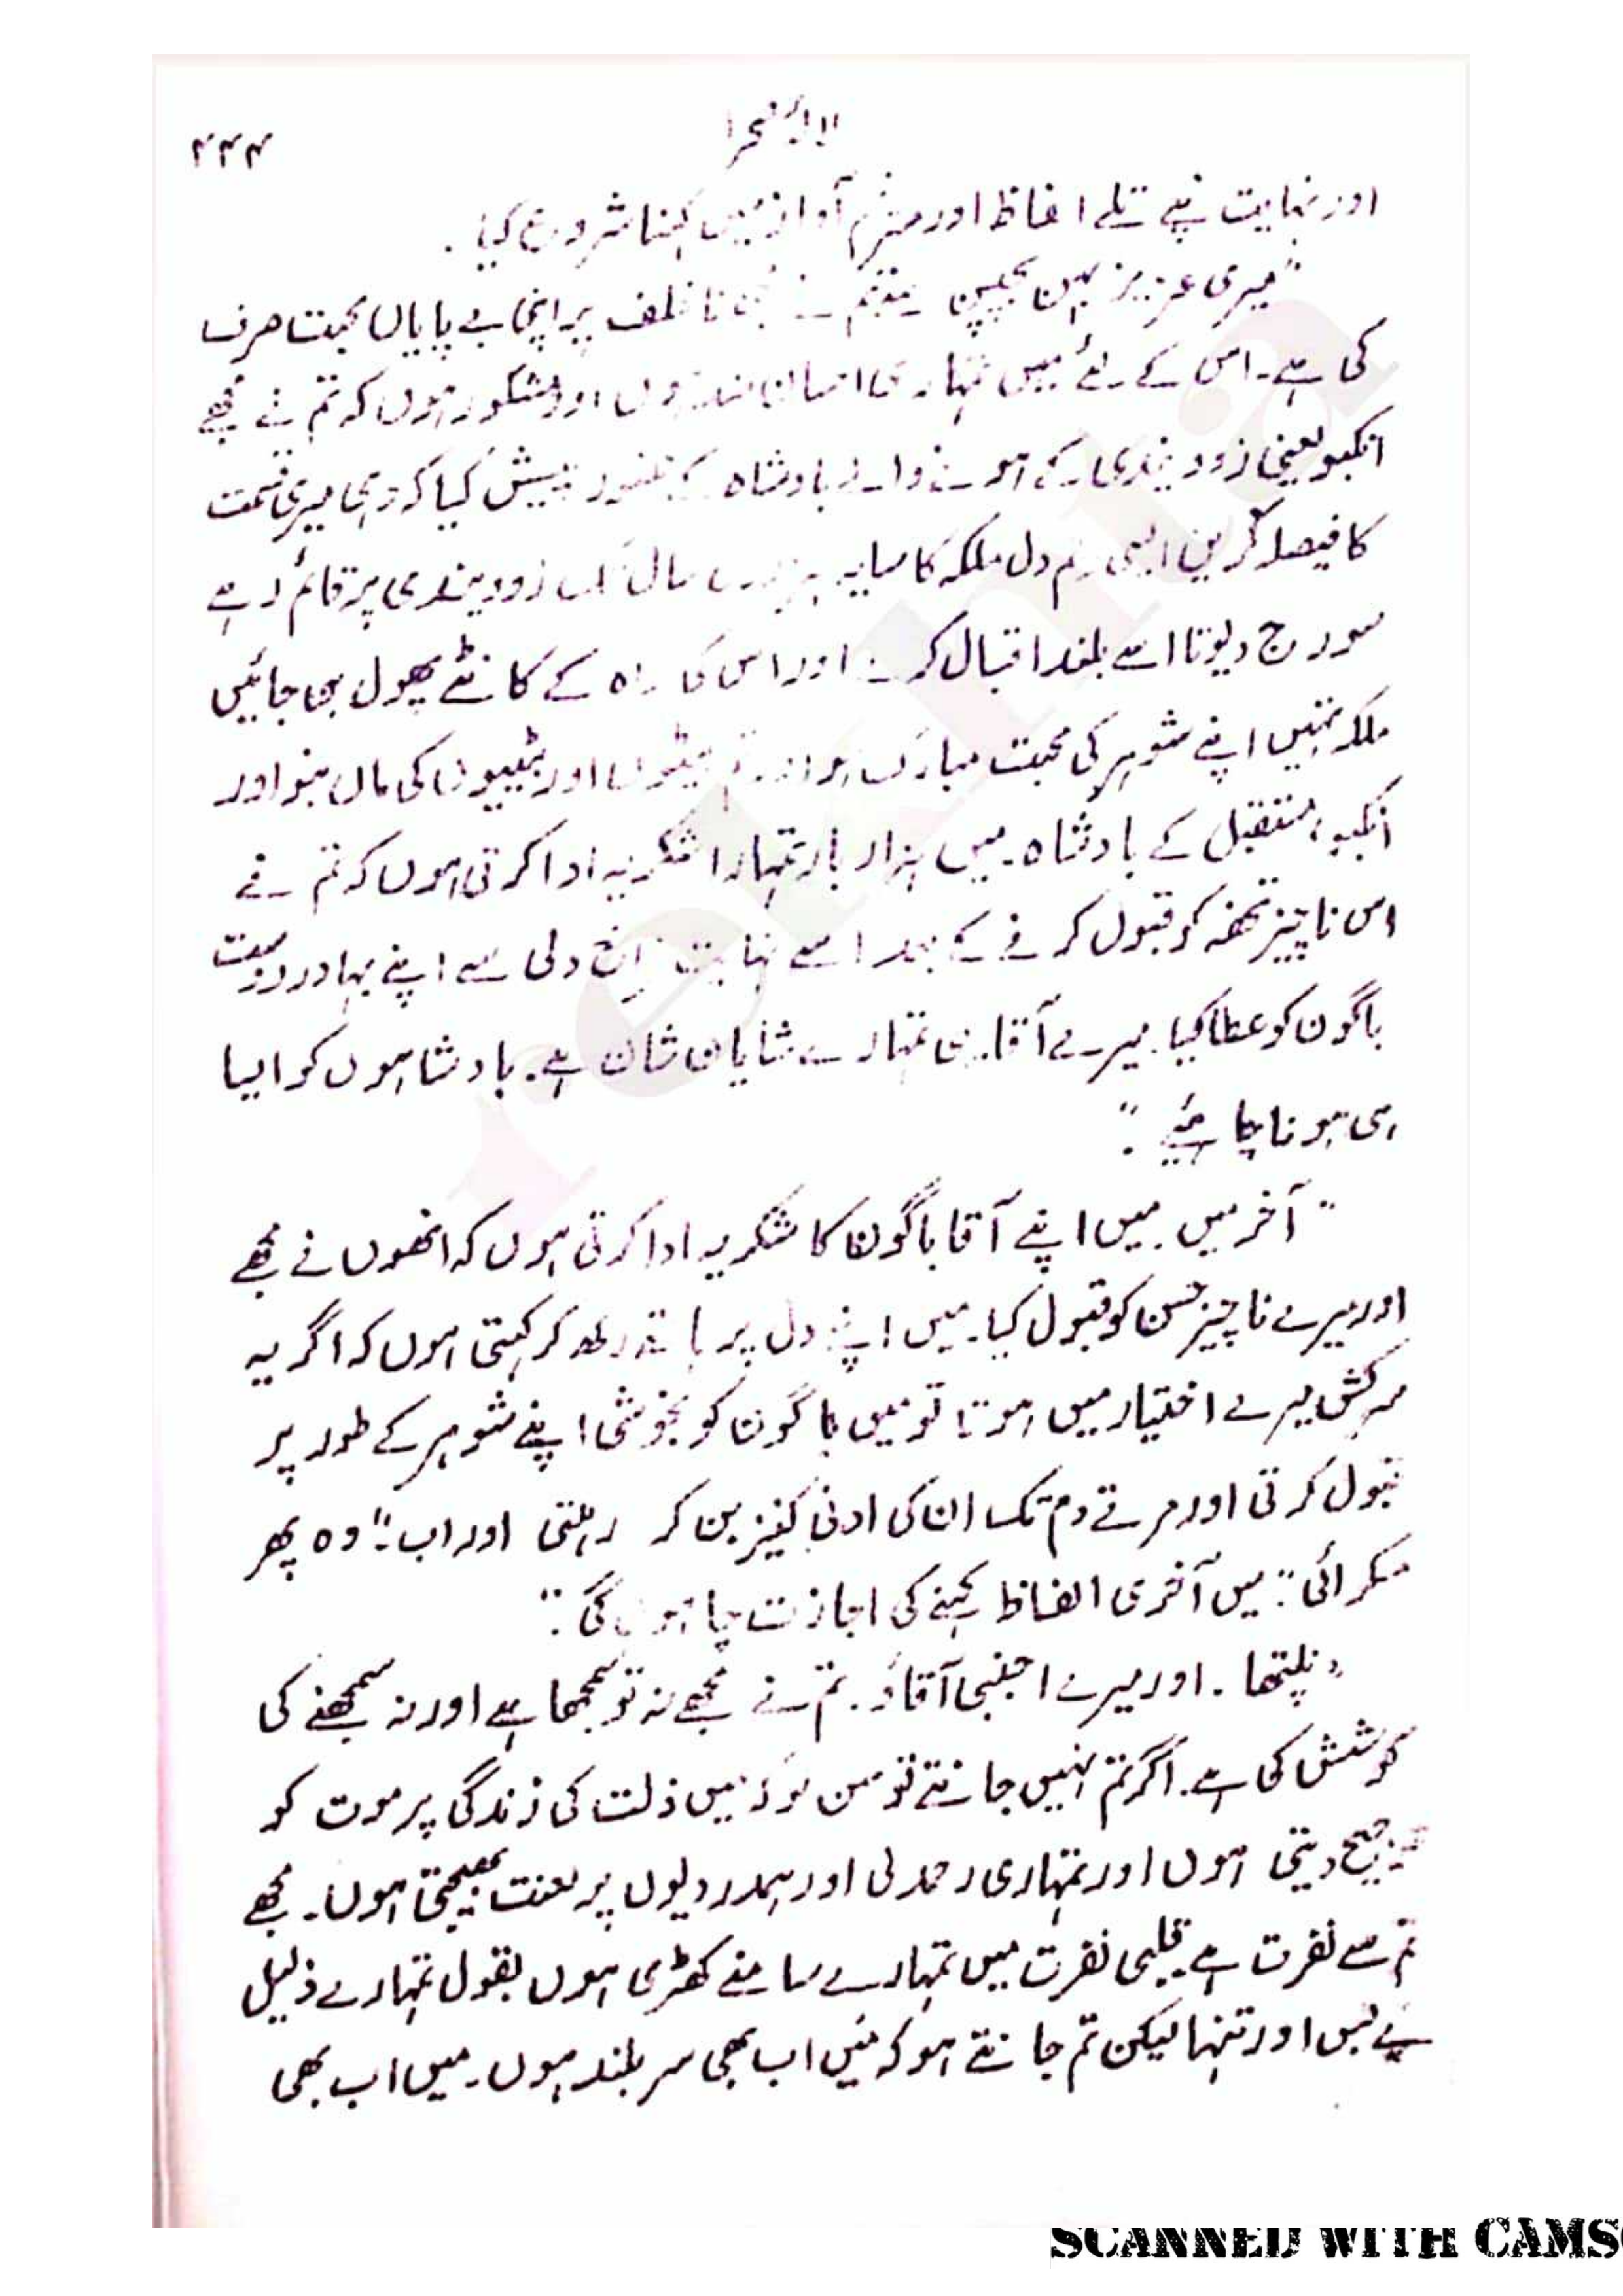 ۲۳۴
لالۂ صحرا
اور نہایت نپے تلے الفاظ اور مترنم آواز میں کہنا شروع کیا۔
"میری عزیز بہن بچپن سے تم نے نا خلف پر اپنی بے پایاں محبت صرف
کی ہے۔ اس کے لئے میں تمہاری احسان مند ہوں اور مشکور ہوں کہ تم نے مجھے
انکبو یعنی زودیندی کے ہونے والے بادشاہ کے حضور پیش کیا کہ وہی میری قسمت
کا فیصلہ کریں ایسی رحم دل ملکہ کا سایہ ہزاروں سال تک زودیندی پر قائم رہے
سورج دیوتا اسے بلند اقبال کرے اور اس کی راہ کے کانٹے پھول بن جائیں
ملکہ تمہیں اپنے شوہر کی محبت مبارک ہو اور تم بیٹوں اور بیٹیوں کی ماں بنو اور
انکبو، مستقبل کے بادشاہ۔ میں ہزار بار تمہارا شکریہ ادا کرتی ہوں کہ تم نے
اس ناچیز تحفہ کو قبول کرنے کے بعد اسے نہایت فراخ دلی سے اپنے بہادر دوست
باگون کو عطا کیا۔ میرے آقا۔ یہی تمہارے شایان شان ہے۔ بادشاہوں کو ایسا
ہی ہونا چاہئیے۔"
"آخر میں میں اپنے آقا باگون کا شکریہ ادا کرتی ہوں کہ انھوں نے مجھے
اور میرے ناچیز حسن کو قبول کیا۔ میں اپنے دل پر ہاتھ رکھ کر کہتی ہوں کہ اگر یہ
سرکش میرے اختیار میں ہوتا تو میں باگون کو بخوشی اپنے شوہر کے طور پر
قبول کرتی اور مرتے دم تک ان کی ادنیٰ کنیز بن کر رہتی اور اب۔" وہ پھر
مسکرائی "میں آخری الفاظ کہنے کی اجازت چاہوں گی۔"
"نپتھا۔ اور میرے اجنبی آقاؤ۔ تم نے مجھے نہ تو سمجھا ہے اور نہ سمجھنے کی
کوشش کی ہے۔ اگر تم نہیں جانتے تو سن لو کہ میں ذلت کی زندگی پر موت کو
ترجیح دیتی ہوں اور تمہاری رحمدلی اور ہمدردیوں پر لعنت بھیجتی ہوں۔ مجھے
تم سے نفرت ہے قلبی نفرت میں تمہارے سامنے کھڑی ہوں بقول تمہارے ذلیل
بے بس اور تنہا لیکن تم جانتے ہو کہ میں اب بھی سر بلند ہوں۔ میں اب بھی
rekhta
SCANNED WITH CAMS